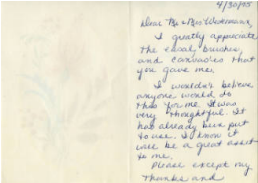 4/30/95
Dear Mr & Mrs
I greatly appreciate
the easel, brushes,
and canvases that
you gave me.
I wouldn't believe
anyone would do
this for me. It was
very thoughtful. It
has already been put
to use. I know it
will be a great asset
to me.
Please except my
thanks and